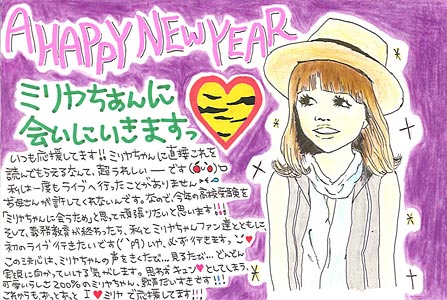 A HAPPY NEW YEAR
ミリヤちゃんに
会いにいきますっ
いつも応援してます!! ミリヤちゃんに直接これを
読んでもらえるなんて、超うれしい――です
私は一度もライブへ行ったことがありません
お母さんが許してくれないんです。なので、今年の高校受験を
「ミリヤちゃんに会うため」と思って頑張りたいと思います!!!
そして、義務教育が終わったら、私とミリヤちゃんファン達とともに
初のライブ行きたいです(^^)いや、必ず行きます。
この決心は、ミリヤちゃんの声をきくたび…見るたび…どんどん
実現に向かっていける気がします。思わずキュン♥としてしまう、
可愛いらしさ200%のミリヤちゃん、歌声だいすきです!!!
これからもずっとずっと I ♥ ミリヤ で応援してます!!!